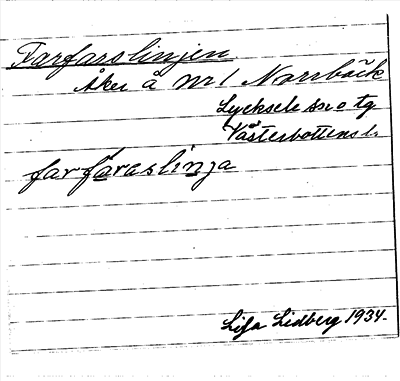 Farfarslinjen
Åker å nr 1 Norrbäck
Lycksele sn o tg
Västerbottens l.
farfàraslinja
Lisa Lidberg 1934.